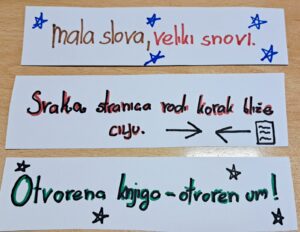 Mala slova, veliki snovi.
Svaka stranica rodi korak bliže
cilju.
Otvorena knjiga - otvoren um!